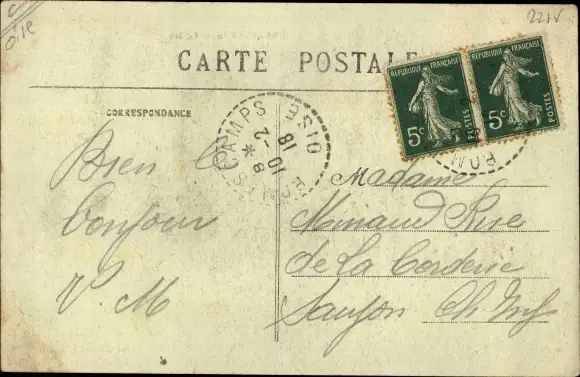 Oise
221V
CARTE POSTALE
RÉPUBLIQUE FRANÇAISE
5c
POSTES
RÉPUBLIQUE FRANÇAISE
5c
POSTES
CORRESPONDANCE
CAMPS
OISE
8 *
10 -2
18
Bien
bonjour
V. M
Madame
Minaud Rue
de la Corderie
Saujon Ch. Inf